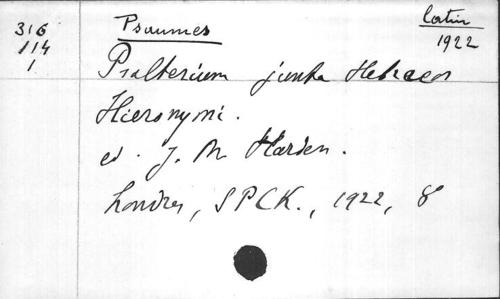 316
114
1
Psaumes
Latin
1922
Psalterium juxta Hebraeos
Hieronymi.
ed. J. M. Harden.
Londres, SPCK., 1922, 8